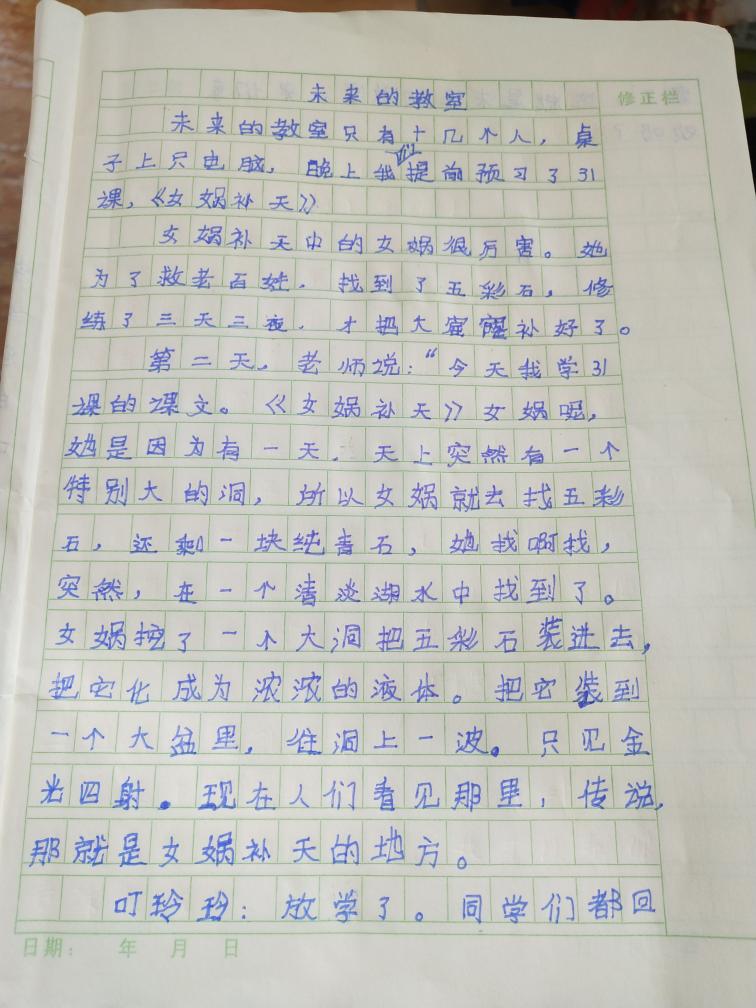 未来的教室
修正栏
未来的教室只有十几个人，桌
子上只电脑，晚上我们提前预习了31
课，《女娲补天》
女娲补天中的女娲很厉害。她
为了救老百姓，找到了五彩石，修
练了三天三夜，才把大窟窿补好了。
第二天，老师说：“今天我学31
课的课文。《女娲补天》女娲呢，
她是因为有一天，天上突然有一个
特别大的洞，所以女娲就去找五彩
石，还剩一块纯青石，她找啊找，
突然，在一个清淡湖水中找到了。
女娲挖了一个大洞把五彩石装进去，
把它化成为浓浓的液体。把它装到
一个大盆里，往洞上一波。只见金
光四射。现在人们看见那里，传说，
那就是女娲补天的地方。
叮玲玲：放学了。同学们都回
日期： 年 月 日